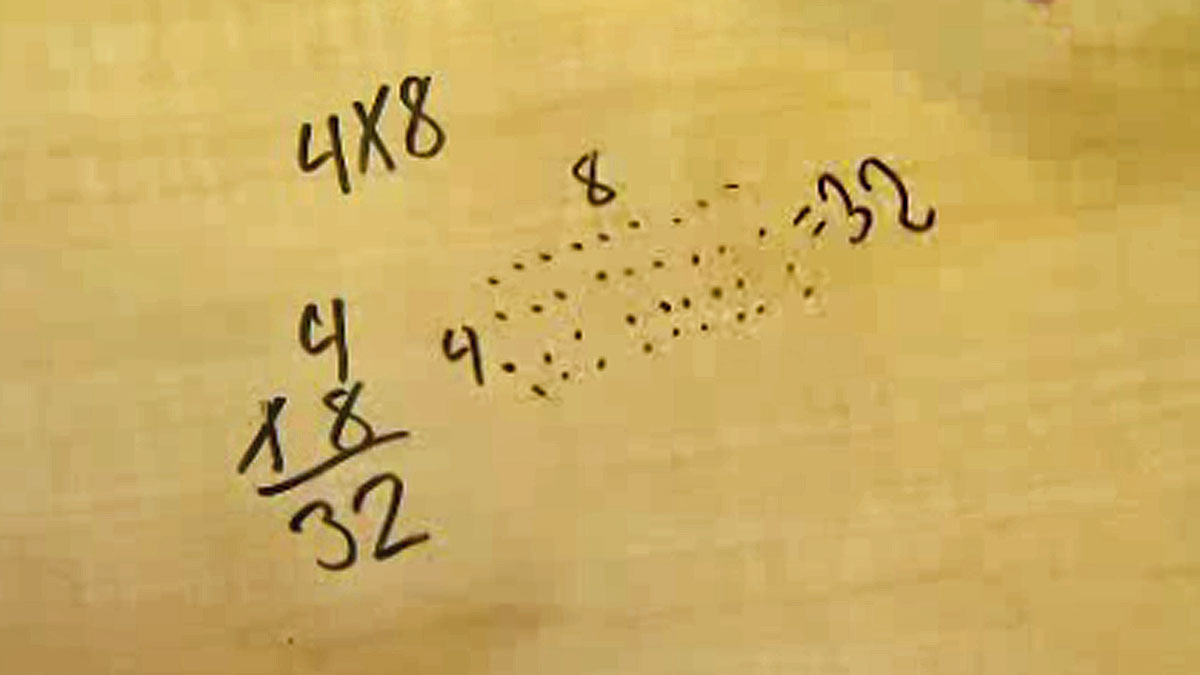 4X8
8
=32
4
4
X 8
32